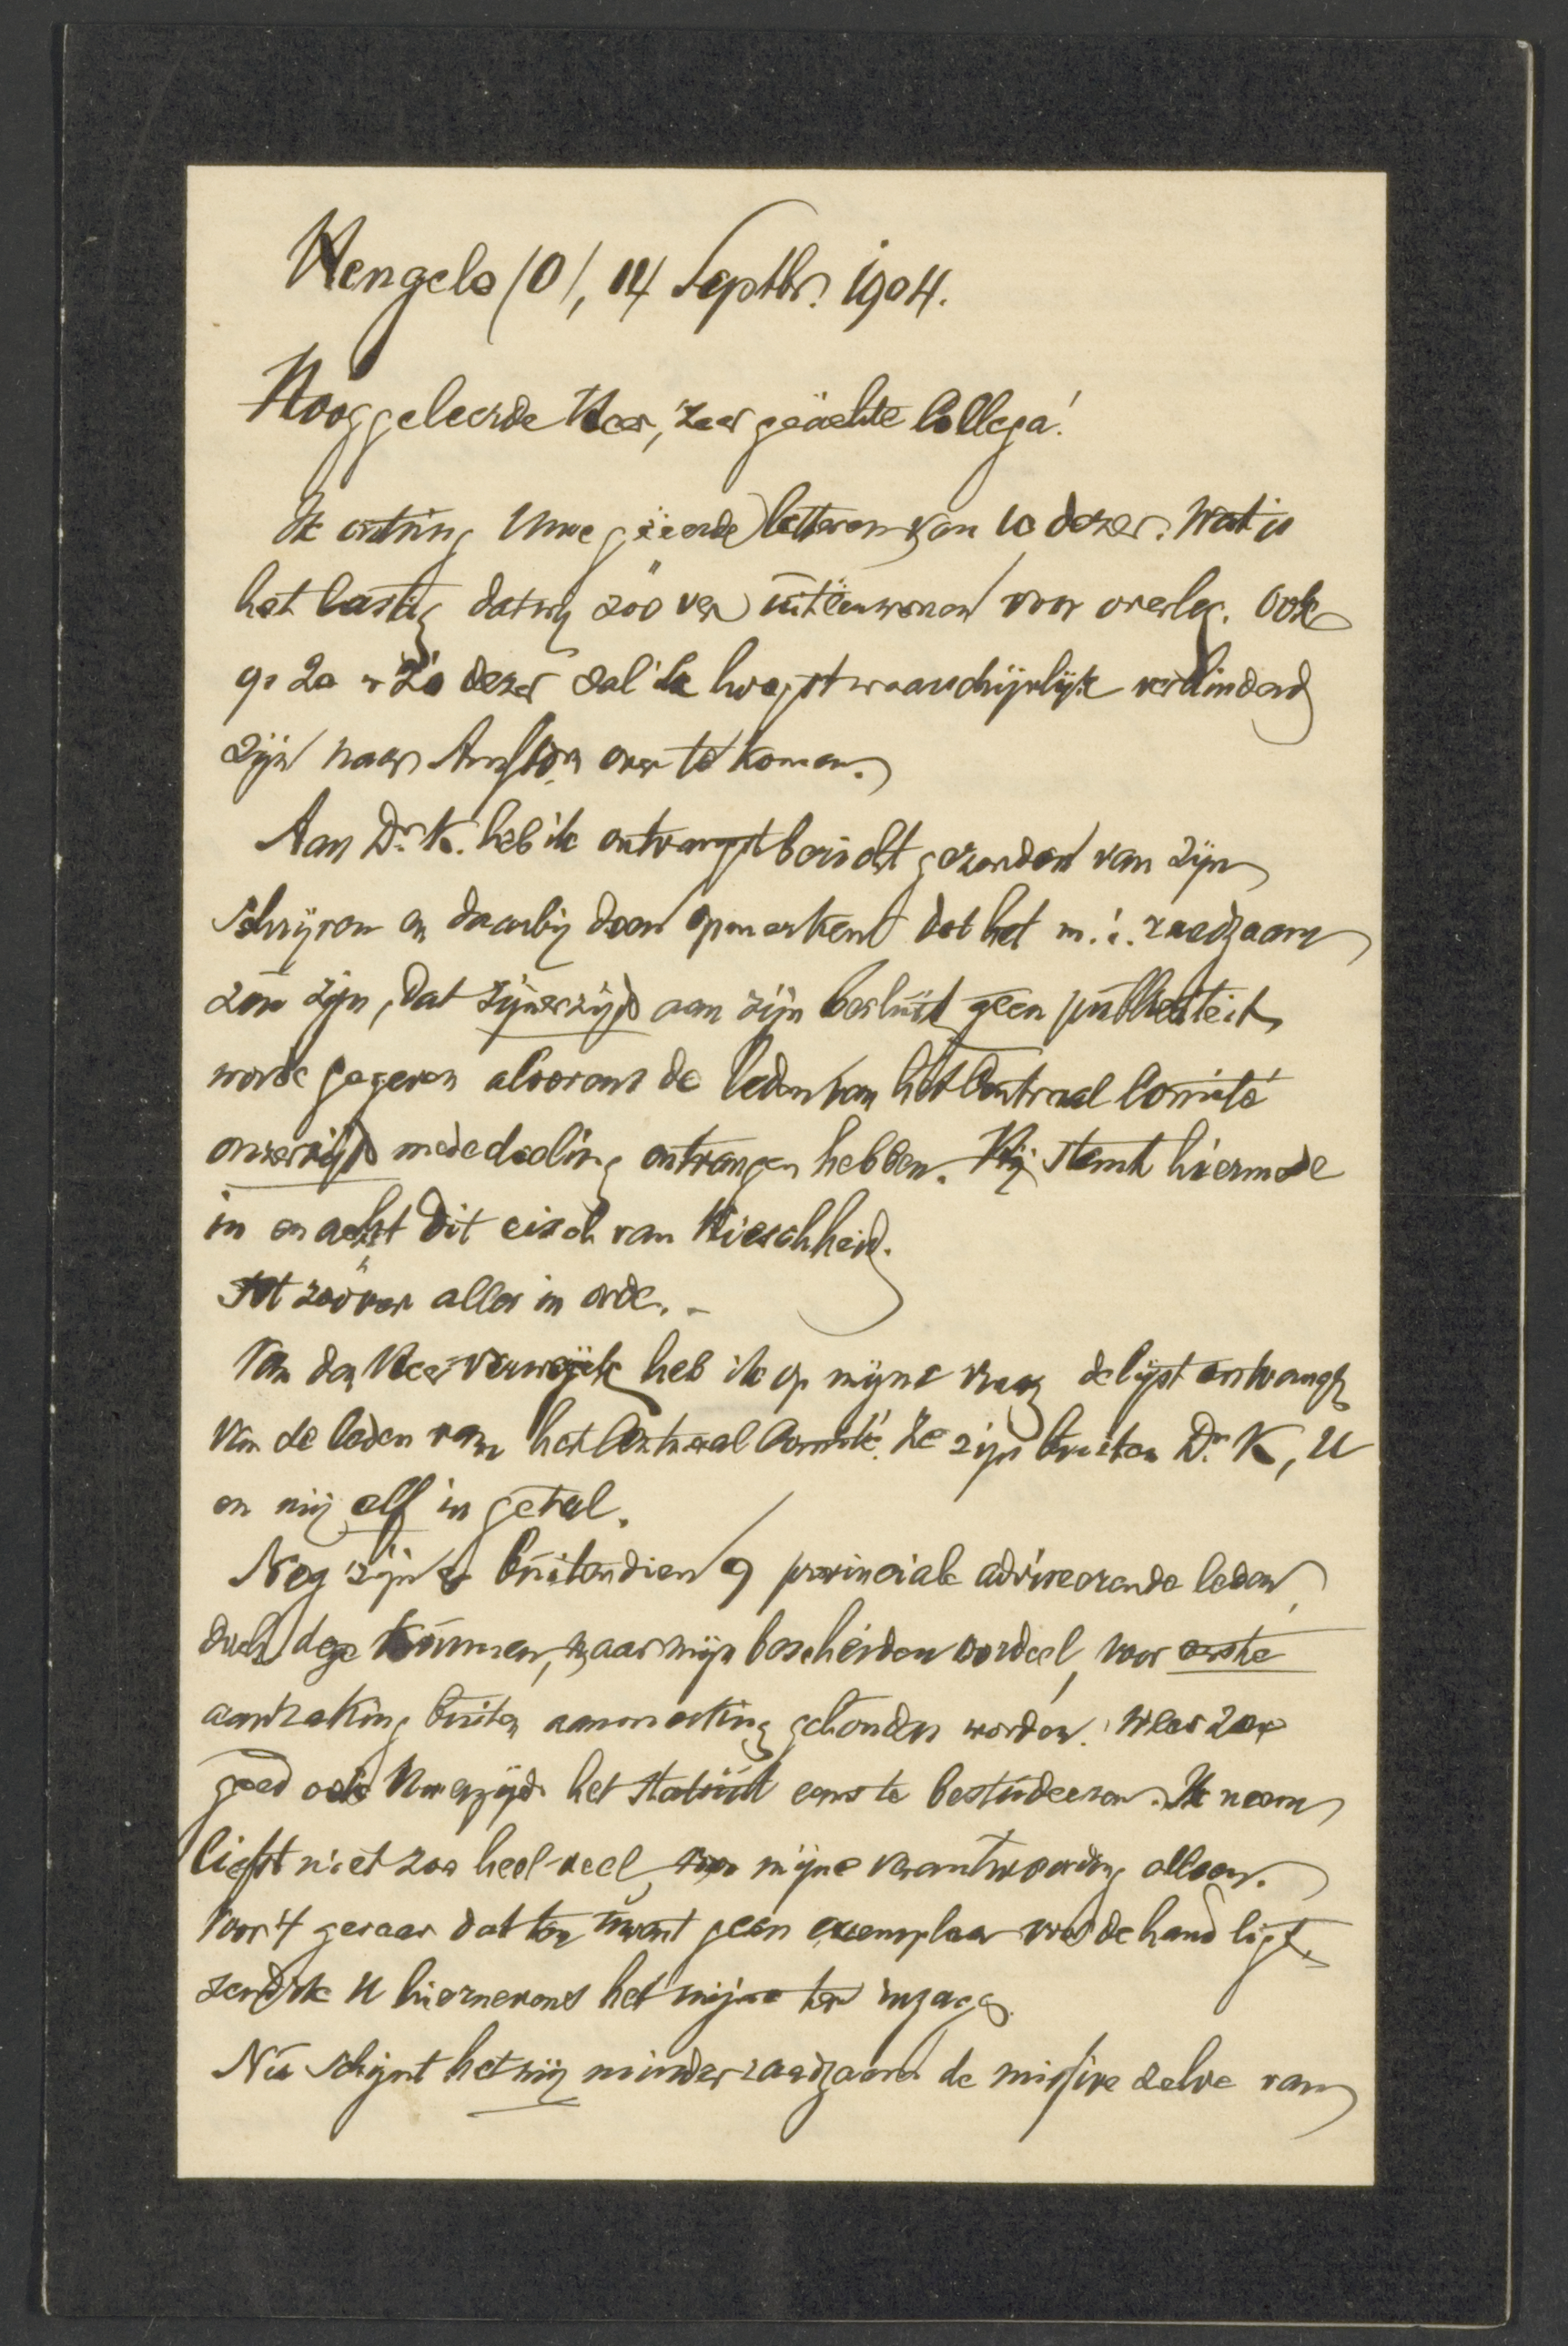 Hengelo (O), 14 Septbr. 1904.
Hooggeleerde Heer, zeer geächte Collega!
Ik ontving Uwe geëerde letteren van 10 dezer. Wat is
het lastig dat wij zóó ver uitéénwonen voor overleg. Ook
op 20 dezer zal ik hoogstwaarschijnlijk verhinderd
zijn naar Amstdm over te komen.
Aan Dr. K. heb ik ontvangstbericht gezonden van zijn
schrijven en daarbij doen opmerken dat het m. i. raadzaam
zou zijn, dat zijnerzijds aan zijn besluit geen publiciteit
worde gegeven alvorens de leden van het Centraal Comité
onzerzijds mededeeling ontvangen hebben. Hij stemt hiermede
in en acht dit eisch van kieschheid.
Tot zoover alles in orde. -
Van den Heer Verweijck heb ik op mijne vraag de lijst ontvangen
van de leden van het Centraal Comité. Ze zijn buiten Dr. K, U
en mij elf in getal.
Nog zijn er buitendien 9 provinciale adviseerende leden,
doch deze kunnen, naar mijn bescheiden oordeel, voor eerste
aanraking buiten aanmerking gehouden worden. Wees zoo
goed ook Uwerzijds het statuut eens te bestudeeren. Ik neem
liefst niet zoo heel veel voor mijne verantwoording alleen.
Voor 't gevaar dat ten Uwent geen exemplaar voor de hand ligt,
zend ik U hiernevens het mijne ter inzage.
Nu schijnt het mij minder raadzaam de missive zelve van